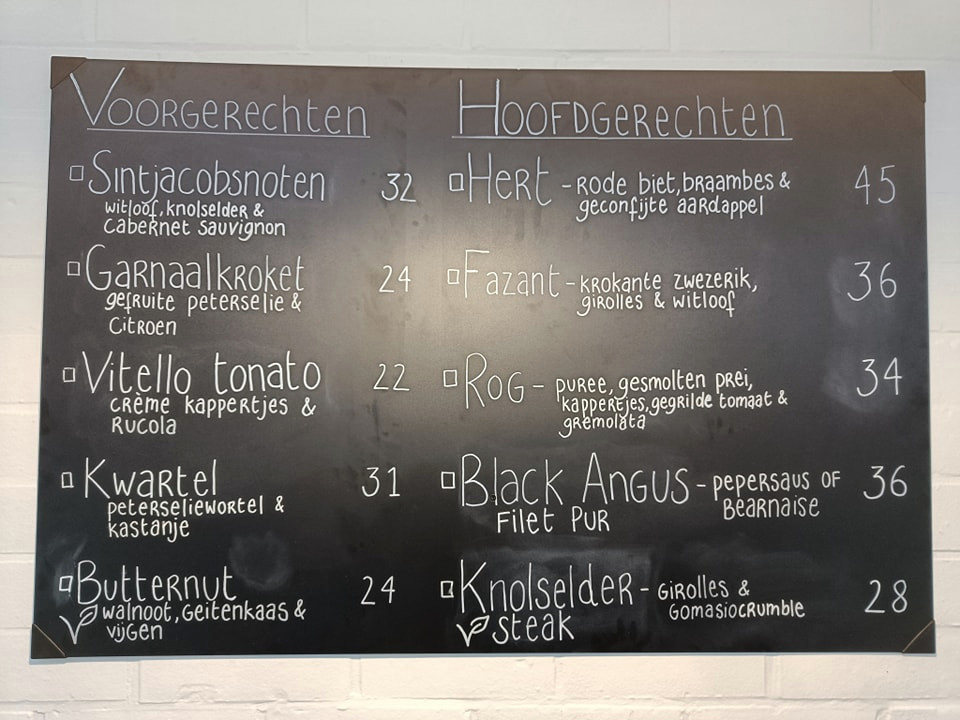 Voorgerechten
Sintjacobsnoten 32
witloof, knolselder &
Cabernet Sauvignon
Garnaalkroket 24
gefruite peterselie &
Citroen
Vitello tonato 22
crème kappertjes &
Rucola
Kwartel 31
peterseliewortel &
kastanje
Butternut 24
walnoot, Geitenkaas &
vijgen
Hoofdgerechten
Hert - Rode biet, braambes & 45
geconfijte aardappel
Fazant - krokante zwezerik, 36
girolles & witloof
Rog - puree, gesmolten prei, 34
kappertjes, gegrilde tomaat &
gremolata
Black Angus - pepersaus of 36
Filet Pur Bearnaise
Knolselder - Girolles & 28
steak Gomasiocrumble